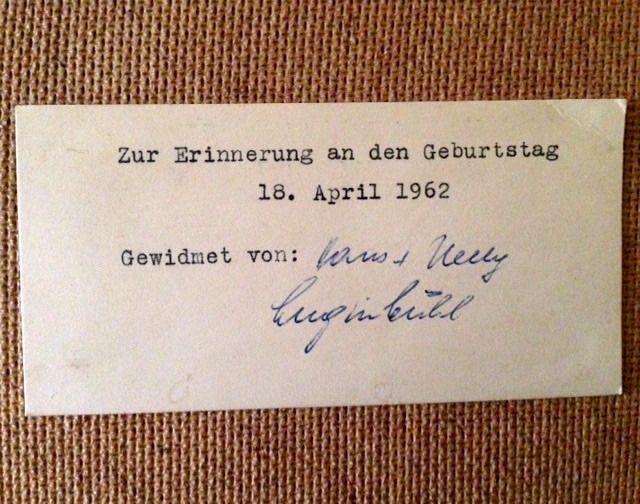 Zur Erinnerung an den Geburtstag
18. April 1962
Gewidmet von: Hans + Nelly
Luginbühl